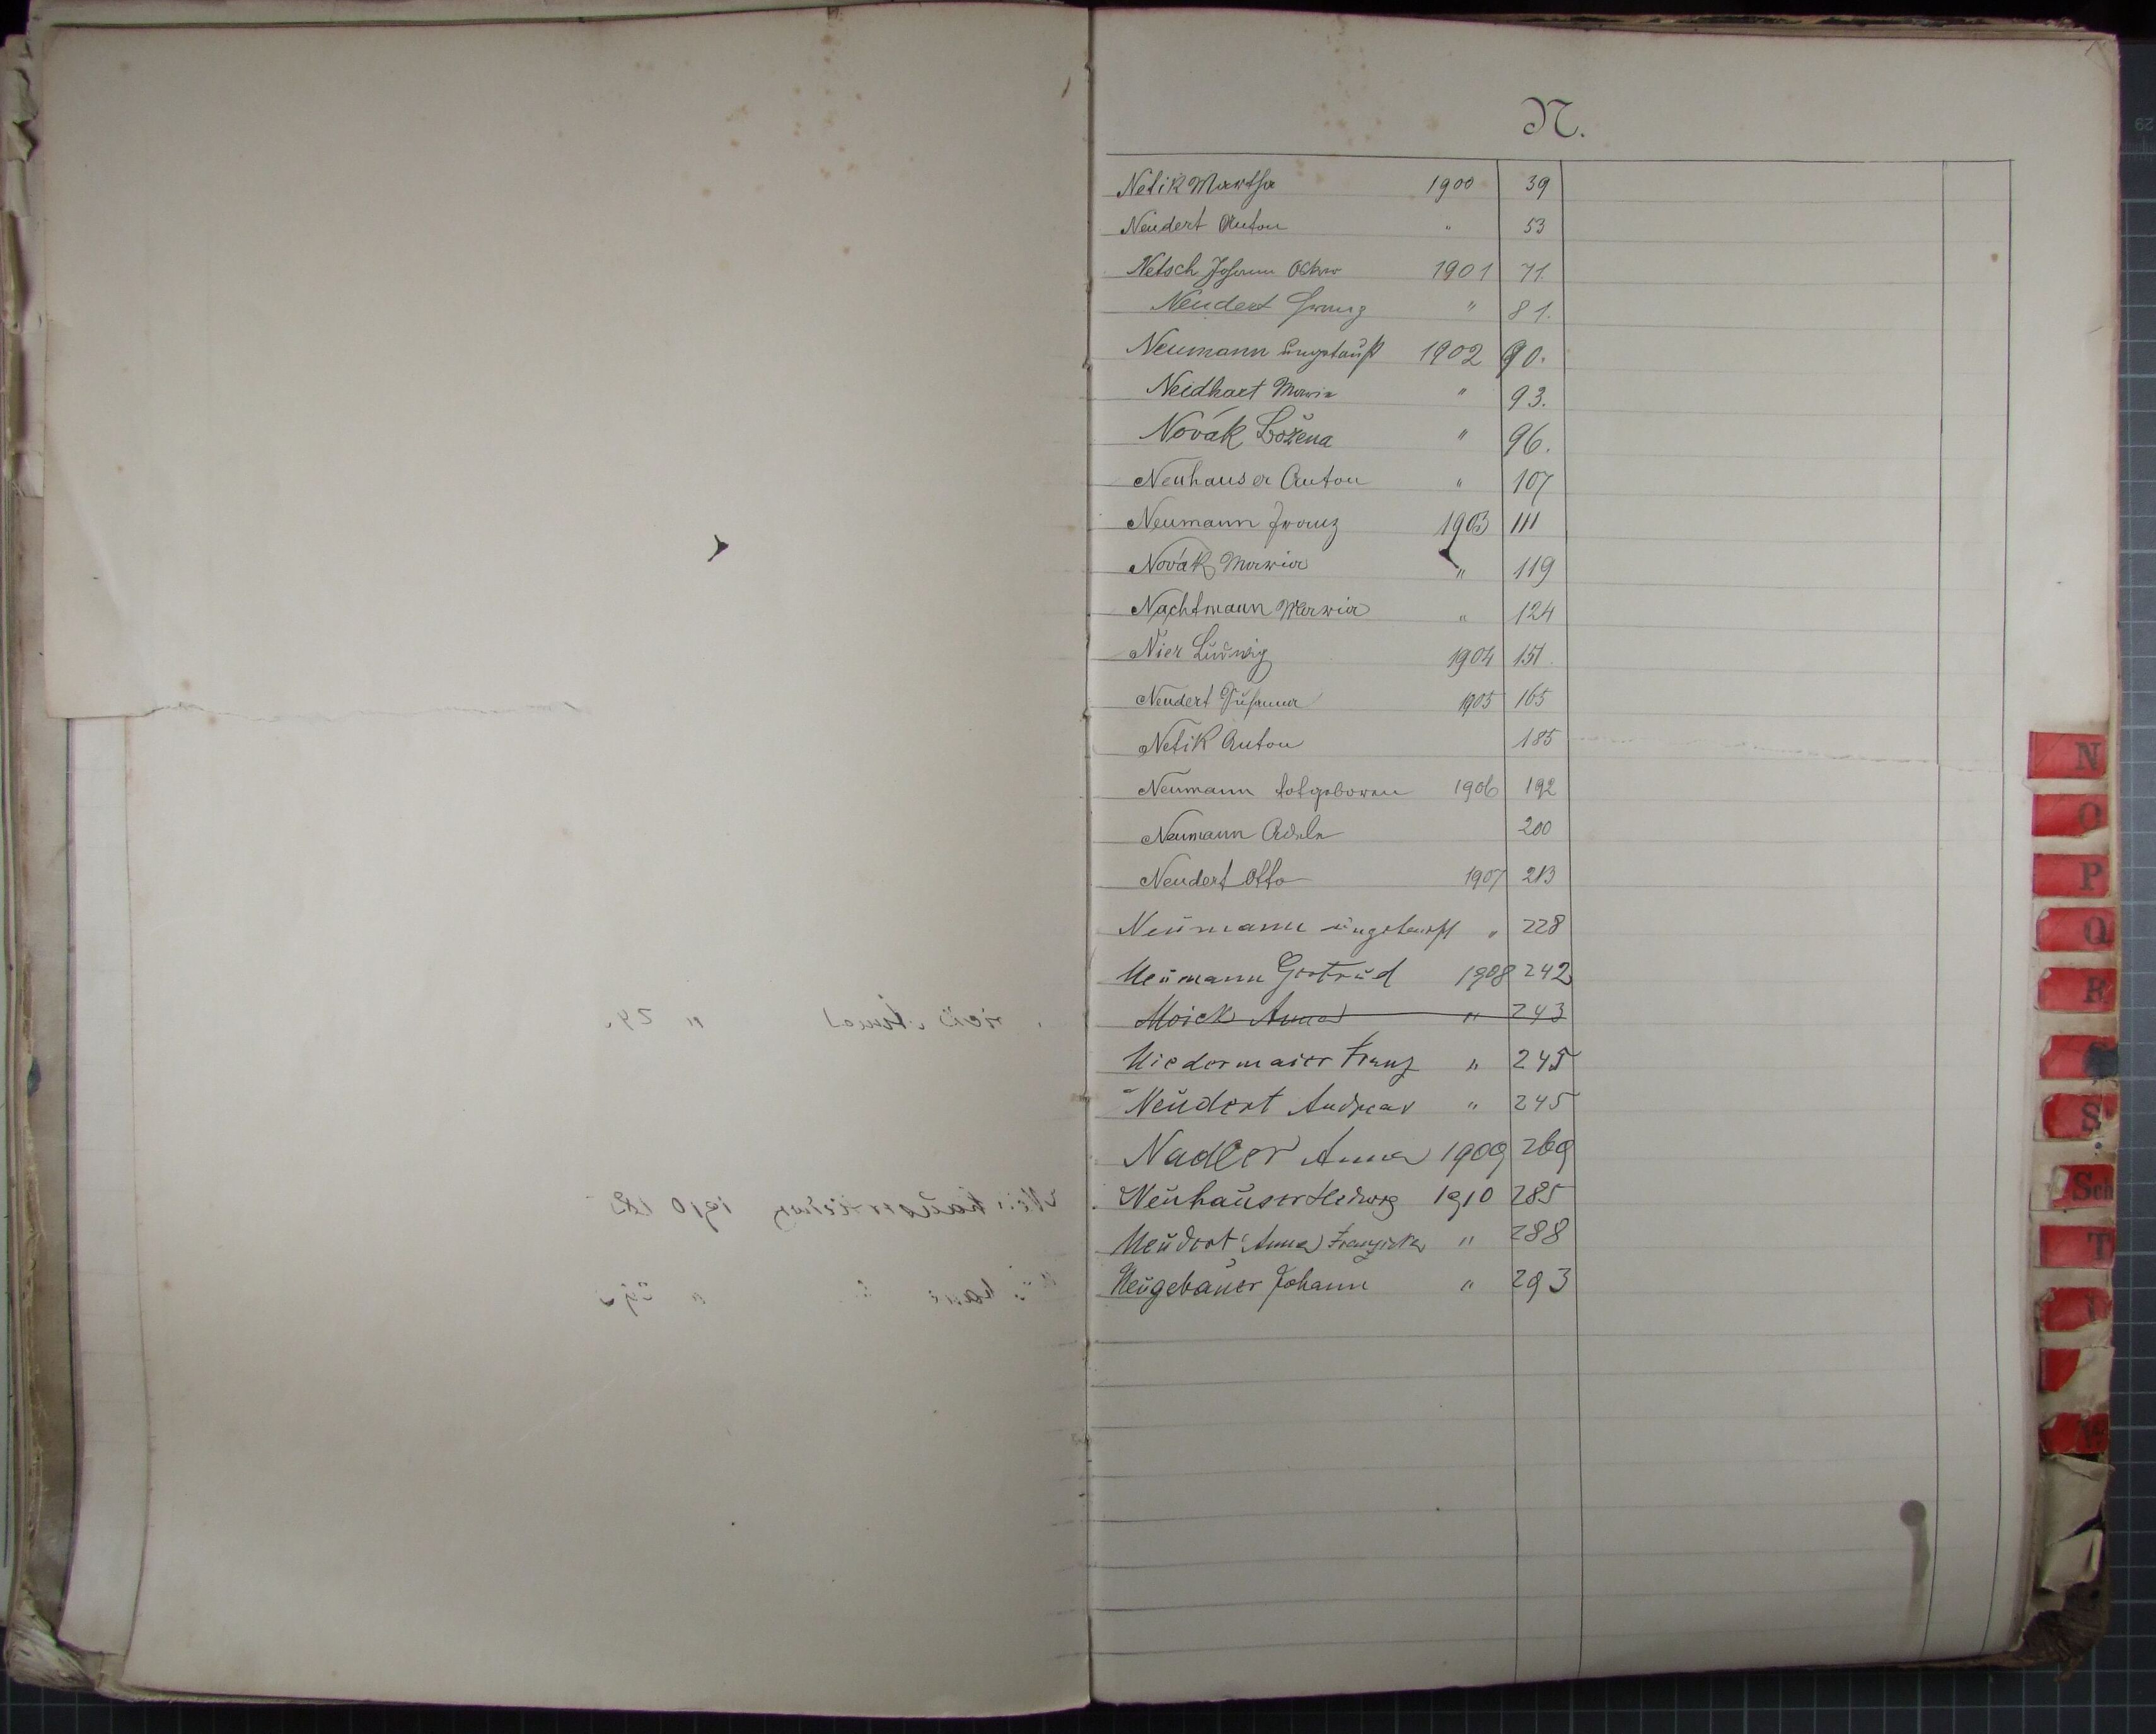 N.
Netik Martha 1900 39
Neudert Anton " 53
Netsch Johann Oskar 1901 71.
Neudert Franz " 81.
Neumann ungetauft 1902 90.
Neidhart Maria " 93.
Novák Božena " 96.
Neuhauser Anton " 107
Neumann Franz 1903 111
Novák Maria " 119
Nachtmann Maria " 124
Nier Ludwig 1904 151.
Neudert Susanna 1905 165
Netik Anton 185
Neumann totgeboren 1906 192
Neumann Adele 200
Neudert Otto 1907 213
Neumann ungetauft " 228
Neumann Gertrud 1908 242
Moick Anna " 243
Niedermaier Franz " 245
Neudert Andreas " 245
Nadler Anna 1909 269
Neuhauser Hedwig 1910 285
Neudert Anna Franziska " 288
Neugebauer Johann " 293
N
O
P
Q
R
S
Sch
T
W